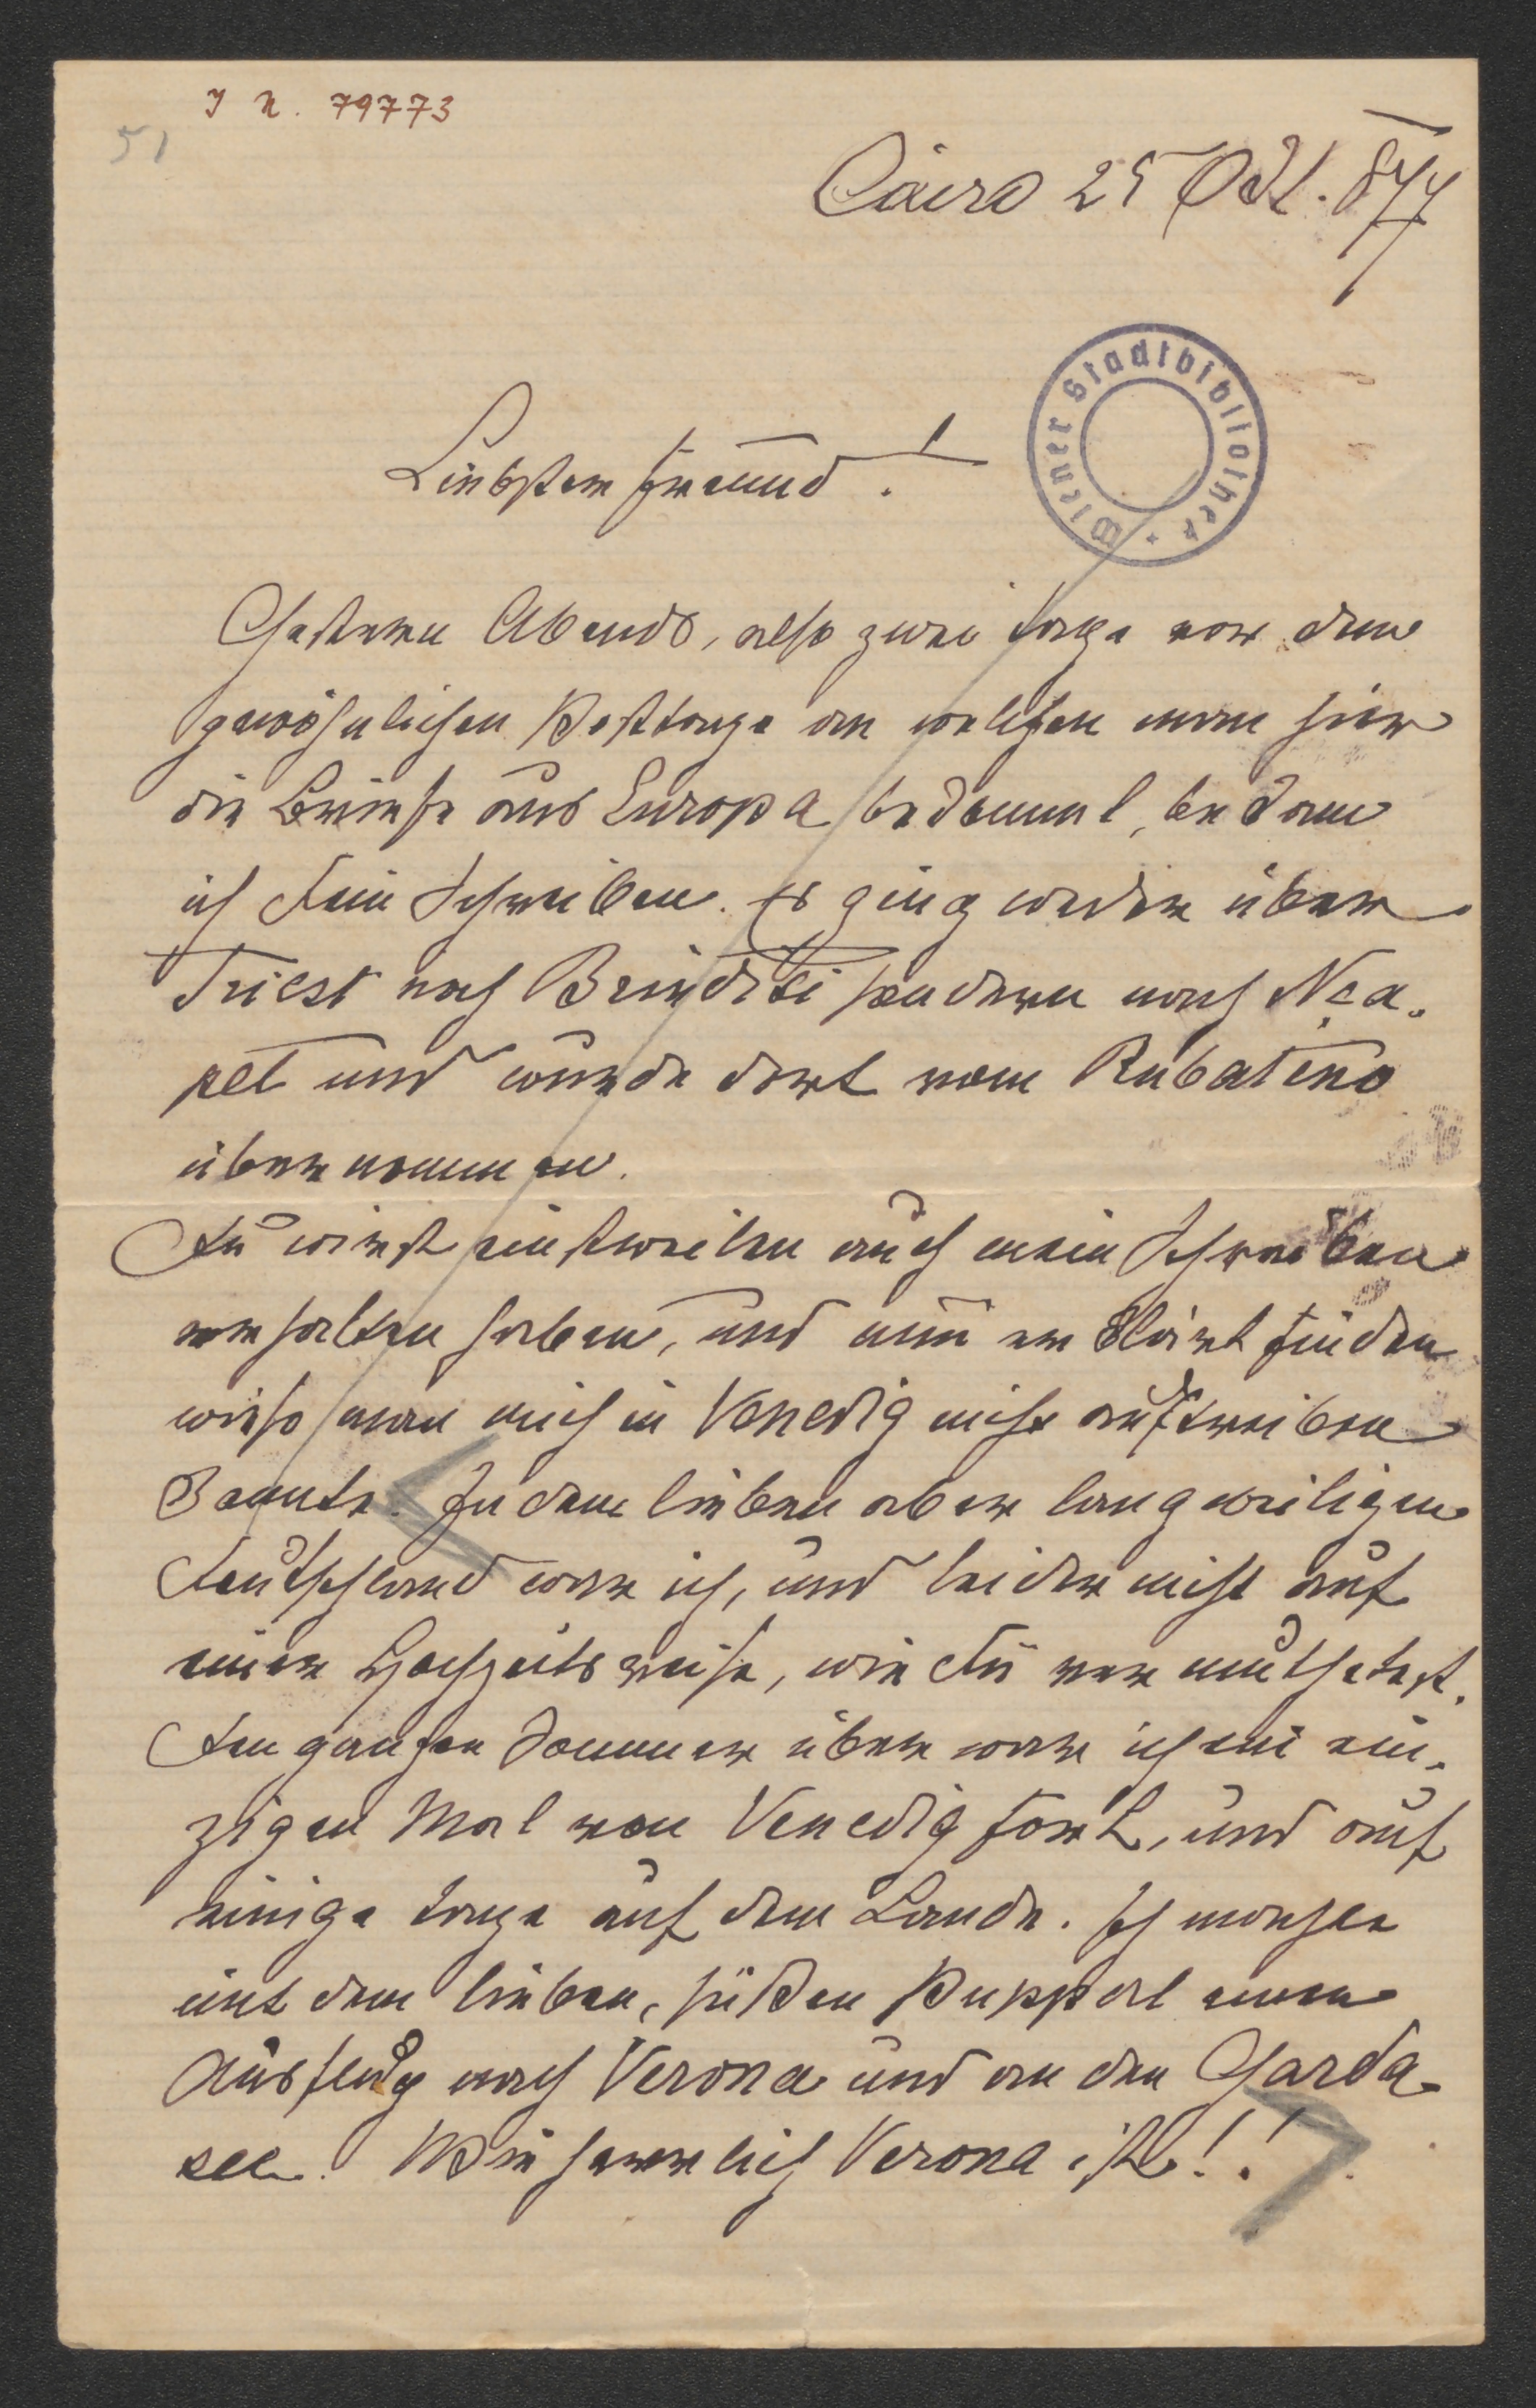 I N. 79773
51
Cairo 25 Okt. 877
Wiener Stadtbibliothek
Liebster Freund!
Gestern Abends, also zwei Tage vor dem
gewöhnlichen Posttage an welchen man hier
die Briefe aus Europa bekommt, bekam
ich Dein Schreiben. Es ging weder über
Triest noch Brindisi sondern nach Nea-
pel und wurde dort vom Rubatino
übernommen.
Du wirst einstweilen auch mein Schreiben
erhalten haben, und nun erklärt finden
wieso man mich in Venedig nicht auftreiben
konnte. In dem lieben aber langweiligen
Deutschland war ich, und leider nicht auf
einer Hochzeitsreise, wie Du vermuthetest.
Den ganzen Sommer über war ich ein ein-
zigen Mal von Venedig fort, und auf
einige Tage auf dem Lande. Ich machte
mit dem lieben, süßen Pupperl einen
Ausflug nach Verona und an den Garda
see. Wie herrlich Verona ist!!